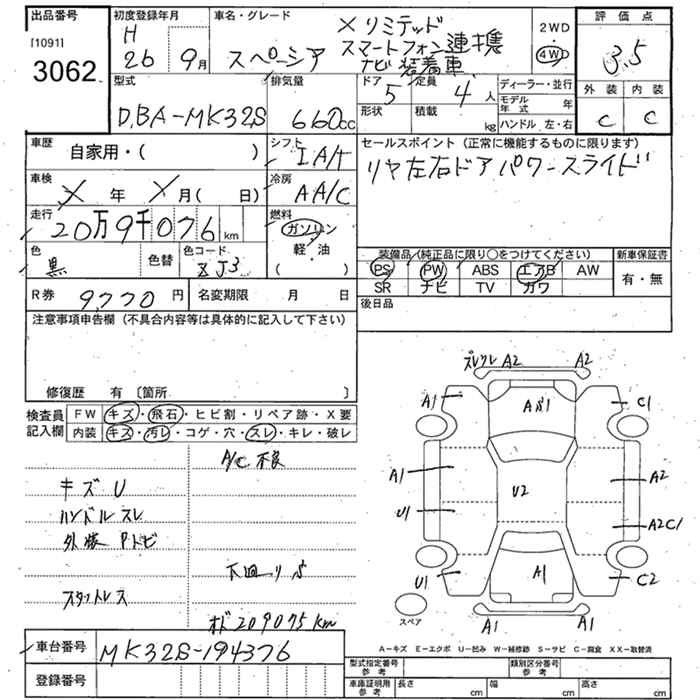 出品番号
[1091]
3062
初度登録年月
H
26 9月
車名・グレード
スペーシア
X リミテッド
スマートフォン連携
ナビ装着車
2WD
4WD
評価点
3.5
外装 内装
C C
型式
DBA-MK32S
排気量
660cc
ドア 5
定員 4人
形状
積載 kg
ディーラー・並行
モデル年式 年
ハンドル 左・右
車歴
自家用・( )
シフト
IA/t
車検
X年 X月( 日)
冷房
AA/C
走行
20万9千076km
燃料
ガソリン
軽・油
( )
色
黒
色替
色コード
ZJ3
セールスポイント(正常に機能するものに限ります)
リヤ左右ドアパワースライド
装備品(純正品に限り○をつけてください)
PS PW ABS エアB AW
SR ナビ TV カワ
新車保証書
有・無
後日品
R券 9770円
名変期限 月 日
注意事項申告欄(不具合内容等は具体的に記入して下さい)
修復歴 有〔箇所 〕
検査員記入欄
FW キズ・飛石・ヒビ割・リペア跡・X要
内装 キズ・汚レ・コゲ・穴・スレ・キレ・破レ
A/C 不良
キズ U
ハンドルスレ
外装 Pトビ
下廻りサビ
スタットレス
オド 209075km
車台番号
MK32S-194376
登録番号
A2 A2
A1 C1
A1 A2
U1 U2 A2C1
U1 A1 C2
A1 A1
スペア
A-キズ E-エクボ U-凹み W-補修跡 S-サビ C-腐食 XX-取替済
型式指定番号 参考
類別区分番号 参考
車庫証明用 参考
長さ cm
幅 cm
高さ cm